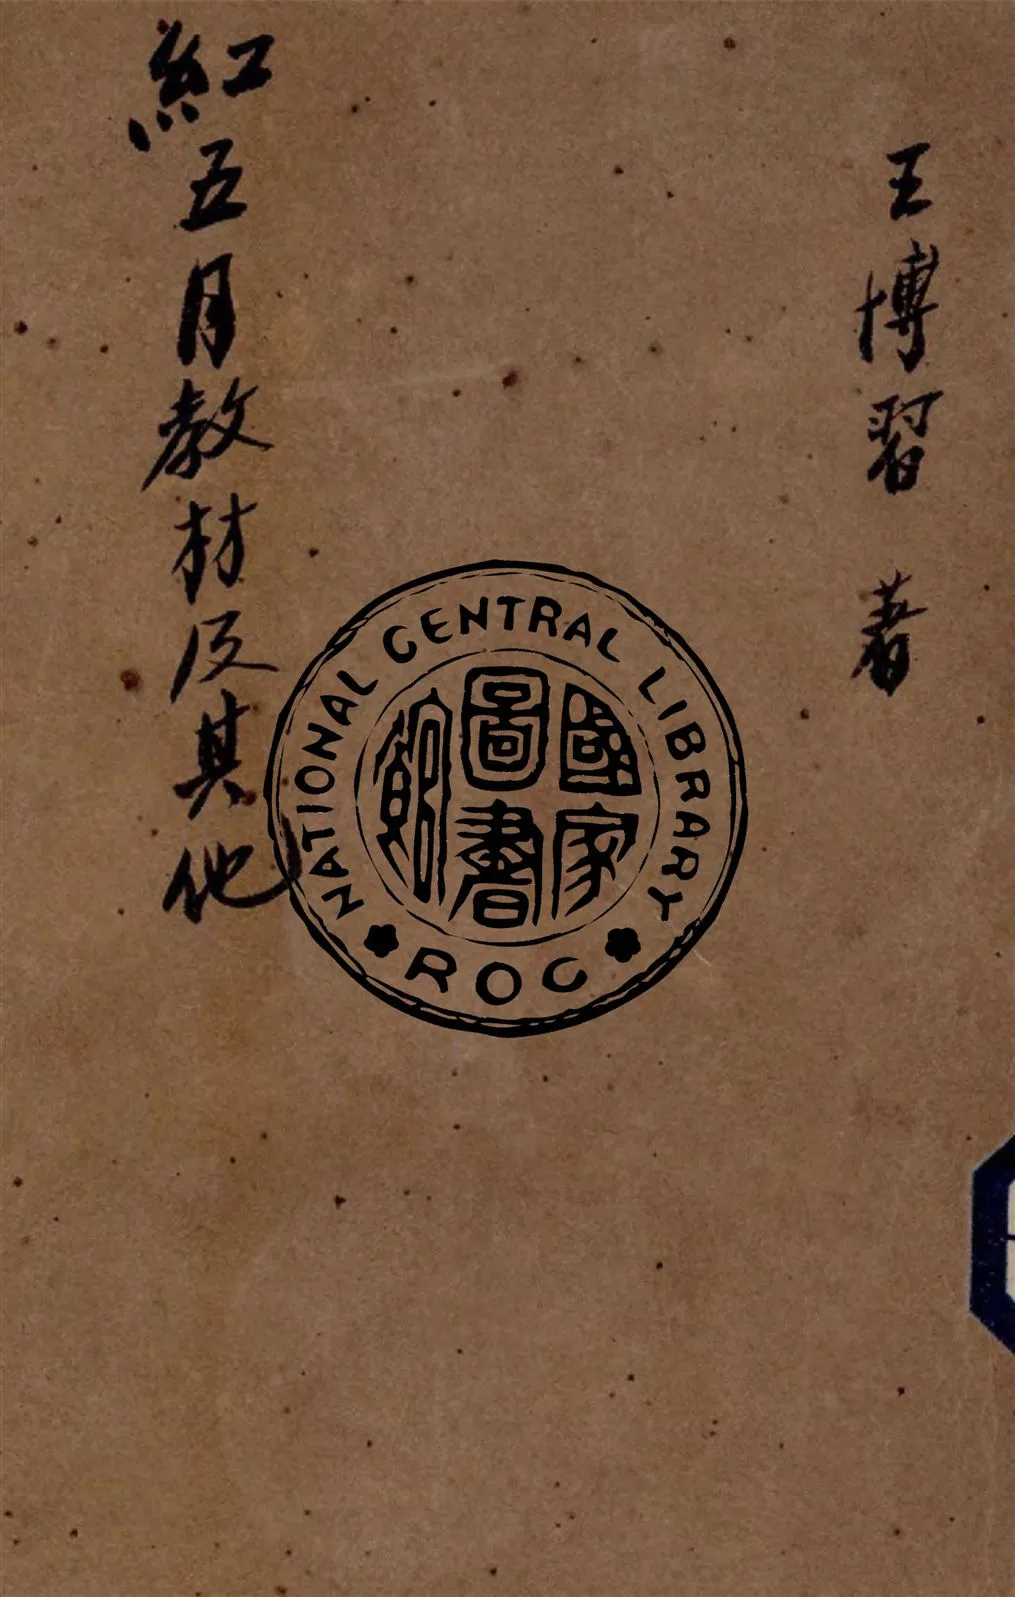 王博習 著
紅五月教材及其他
NATIONAL CENTRAL LIBRARY
國家
圖書
館
ROC